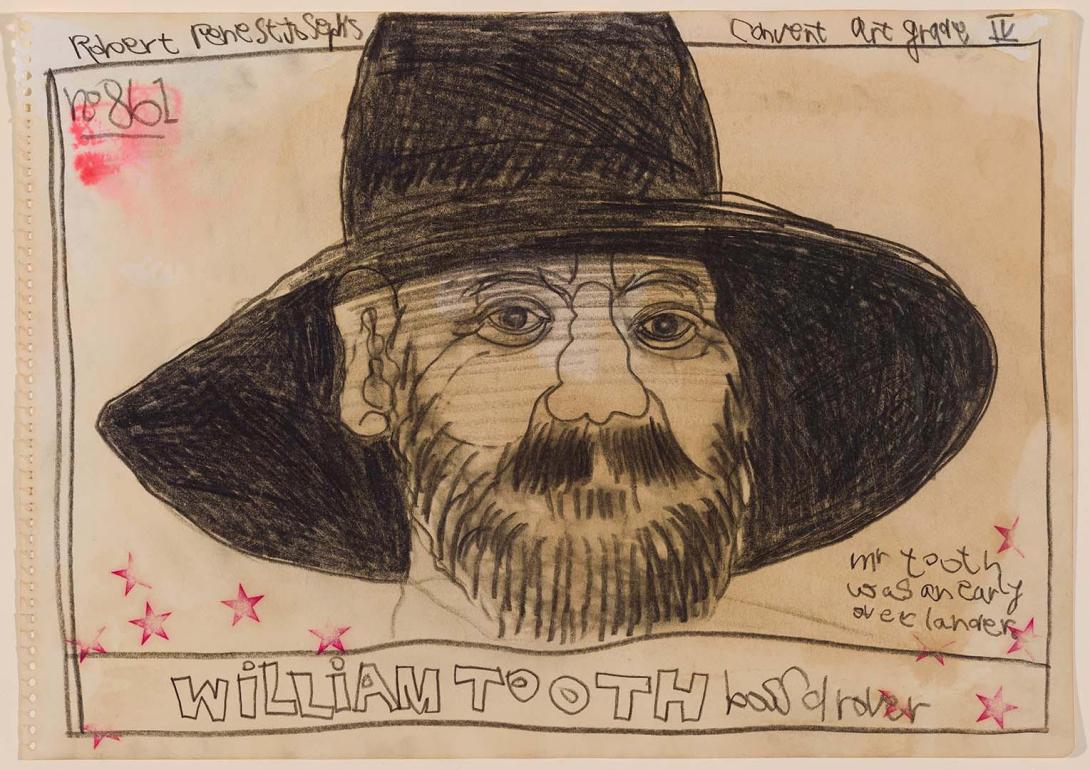 Robert
Convent Art grade IV
no 861
mr tooth
was an early
overlander
WiLLiAM TOOTH boss drover